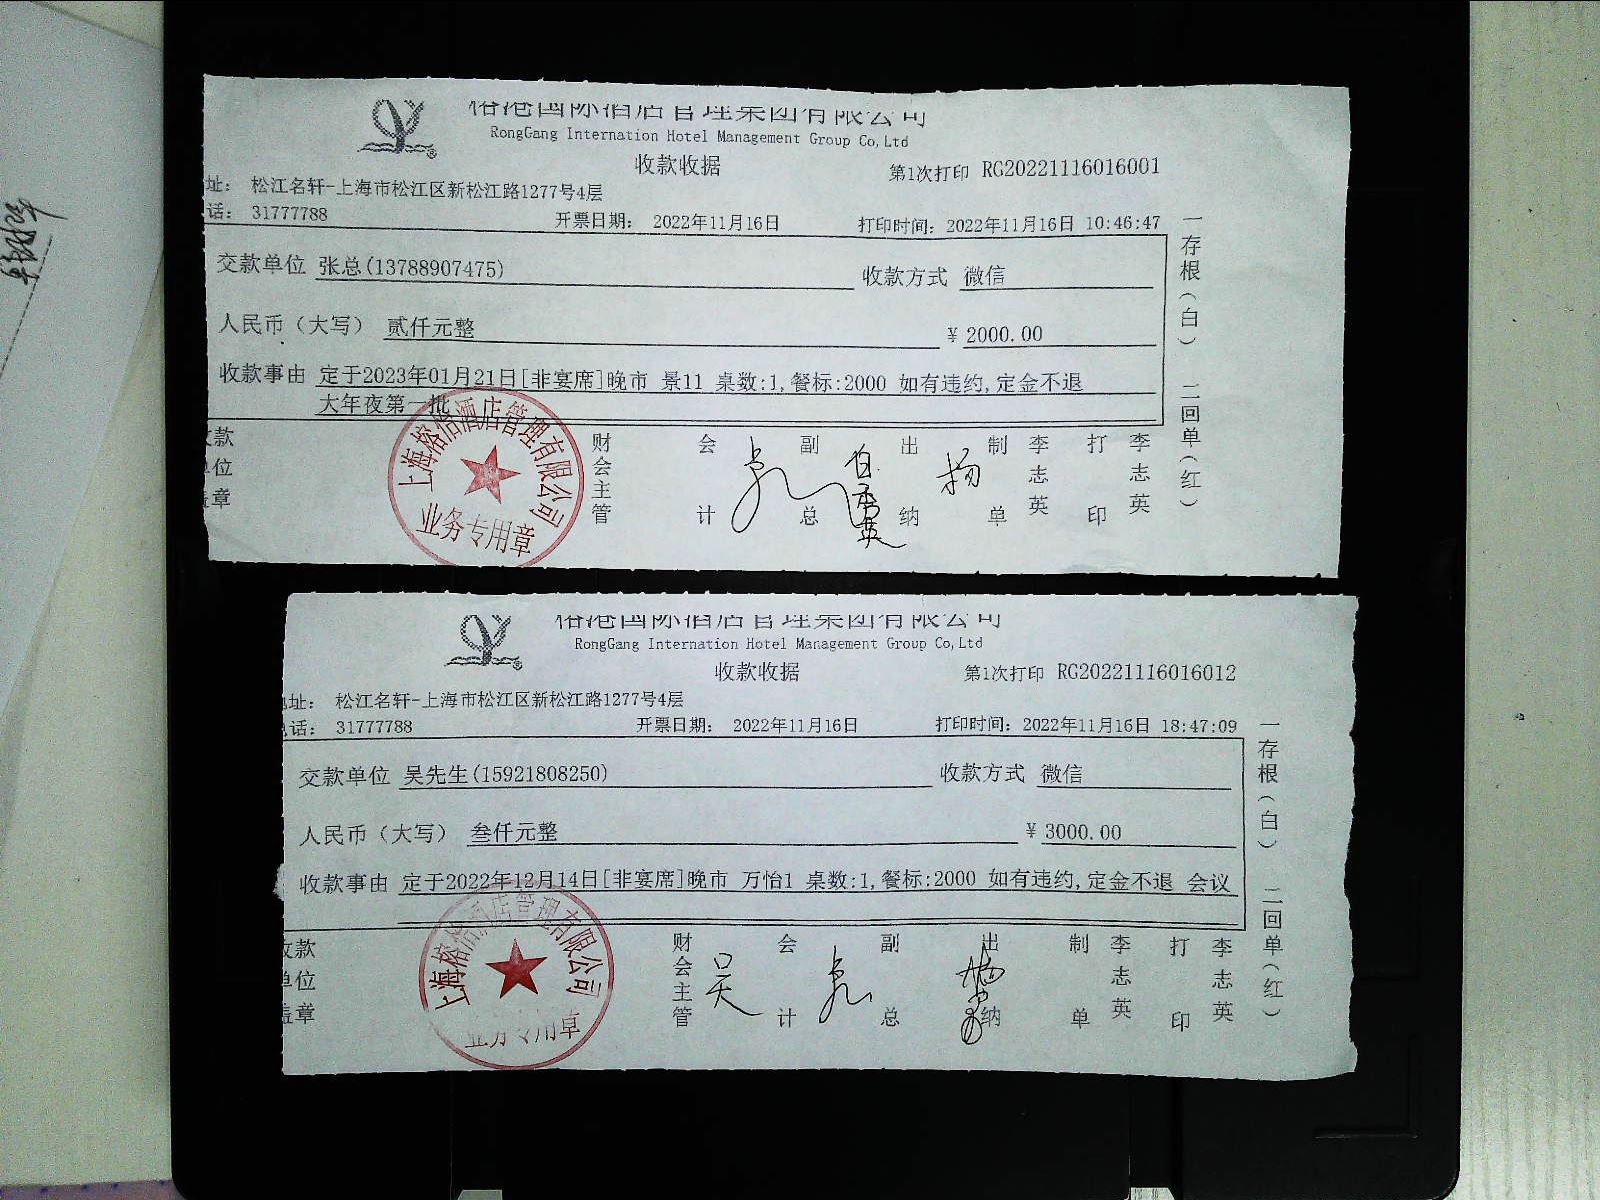 榕港国际酒店管理集团有限公司
RongGang Internation Hotel Management Group Co,Ltd
收款收据
第1次打印 RG20221116016001
址: 松江名轩-上海市松江区新松江路1277号4层
话: 31777788
开票日期: 2022年11月16日
打印时间: 2022年11月16日 10:46:47
交款单位 张总(13788907475)
收款方式 微信
人民币(大写) 贰仟元整
¥ 2000.00
收款事由 定于2023年01月21日[非宴席]晚市 景11 桌数:1,餐标:2000 如有违约,定金不退
大年夜第一批
一存根(白) 二回单(红)
收款单位盖章
上海榕倍酒店管理有限公司
业务专用章
财会主管 会计 副总 出纳 杨 制单 李志英 打印 李志英
榕港国际酒店管理集团有限公司
RongGang Internation Hotel Management Group Co,Ltd
收款收据
第1次打印 RG20221116016012
地址: 松江名轩-上海市松江区新松江路1277号4层
电话: 31777788
开票日期: 2022年11月16日
打印时间: 2022年11月16日 18:47:09
交款单位 吴先生(15921808250)
收款方式 微信
人民币(大写) 叁仟元整
¥ 3000.00
收款事由 定于2022年12月14日[非宴席]晚市 万怡1 桌数:1,餐标:2000 如有违约,定金不退 会议
一存根(白) 二回单(红)
收款单位盖章
上海榕倍酒店管理有限公司
业务专用章
财会主管 吴 会计 副总 出纳 制单 李志英 打印 李志英